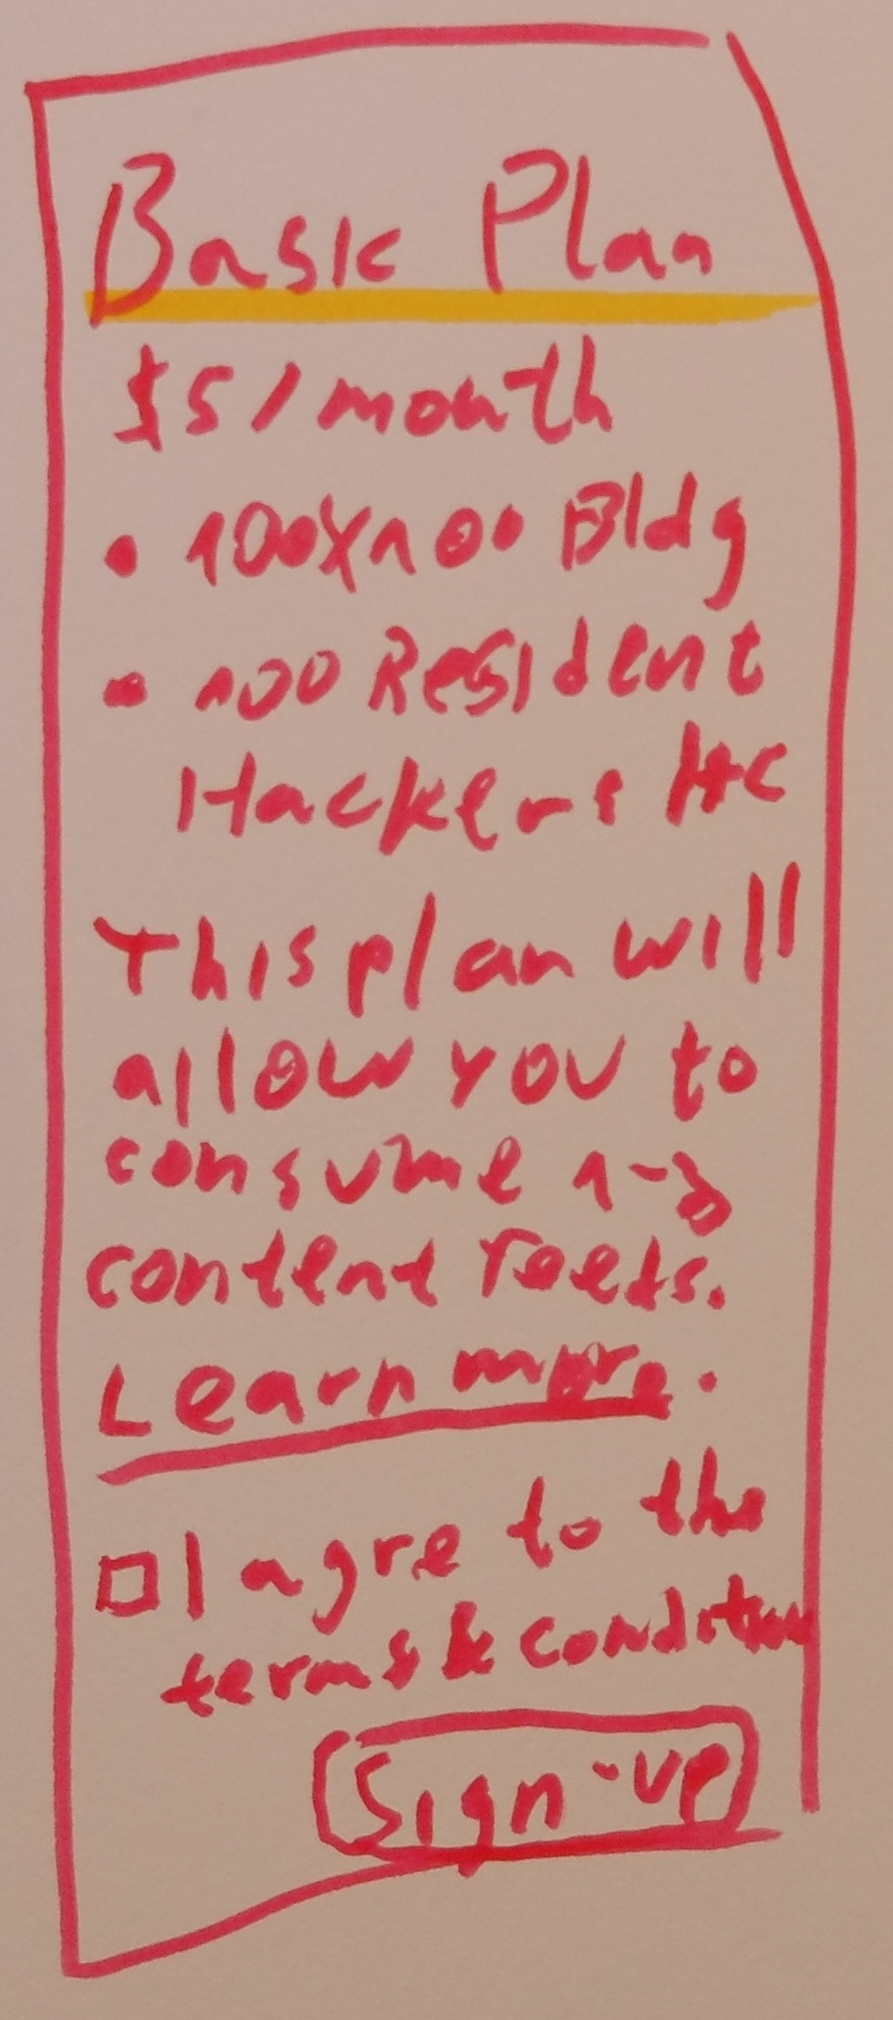 Basic Plan
$5/month
• 100x100 Bldg
• 100 Resident
Hackers HC
This plan will
allow you to
consume 1-3
content feeds.
Learn more.
I agre to the
terms & condition
Sign-up